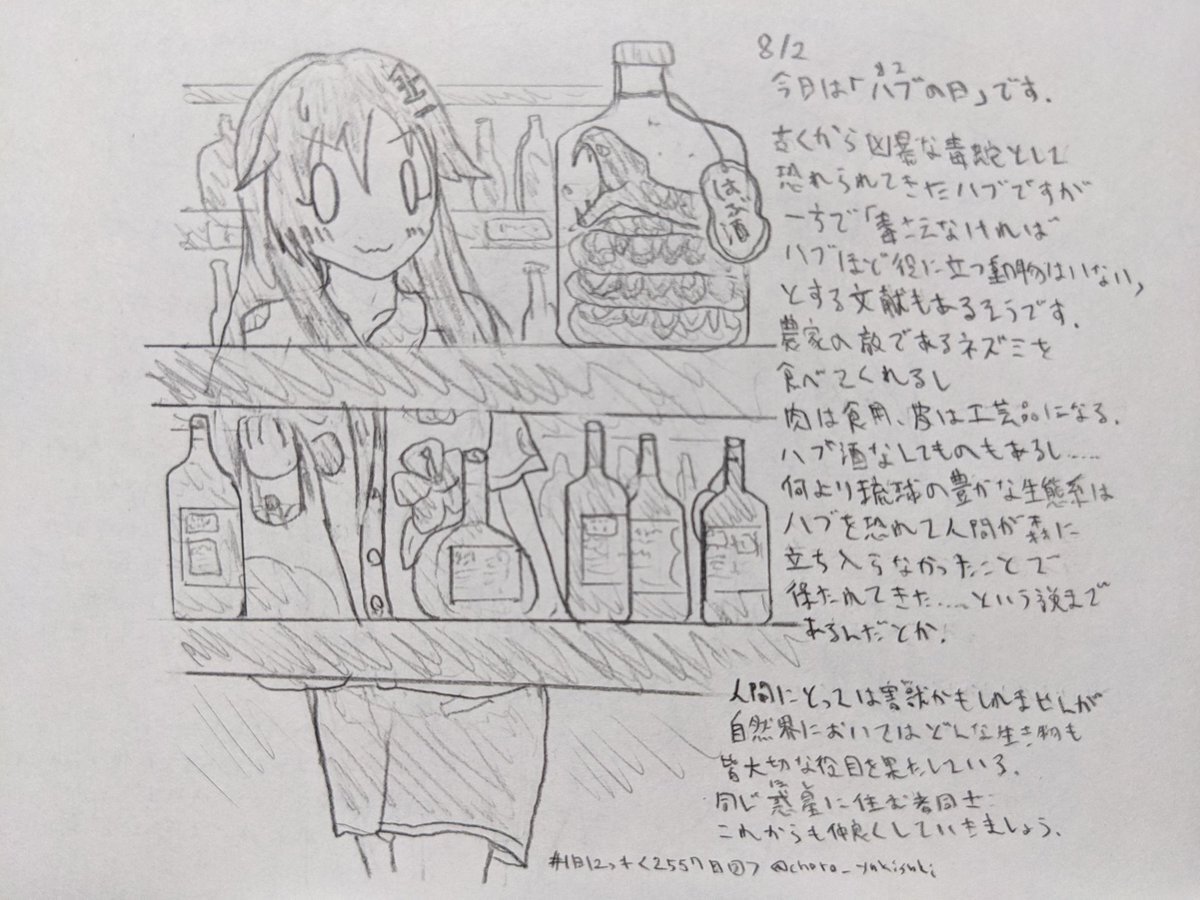 8/2
今日は「ハブの日」です.
古くから凶暴な毒蛇として
恐れられてきたハブですが
一方で「毒さえなければ
ハブほど役に立つ動物はいない」
とする文献もあるそうです.
農家の敵であるネズミを
食べてくれるし
肉は食用、皮は工芸品になる.
ハブ酒なんてものもあるし……
何より琉球の豊かな生態系は
ハブを恐れて人間が森に
立ち入らなかったことで
保たれてきた……という説まで
あるんだとか.
人間にとっては害獣かもしれませんが
自然界においてはどんな生き物も
皆大切な役目を果たしている.
同じ惑星に住む者同士
これからも仲良くしていきましょう.
はぶ酒
2557日目